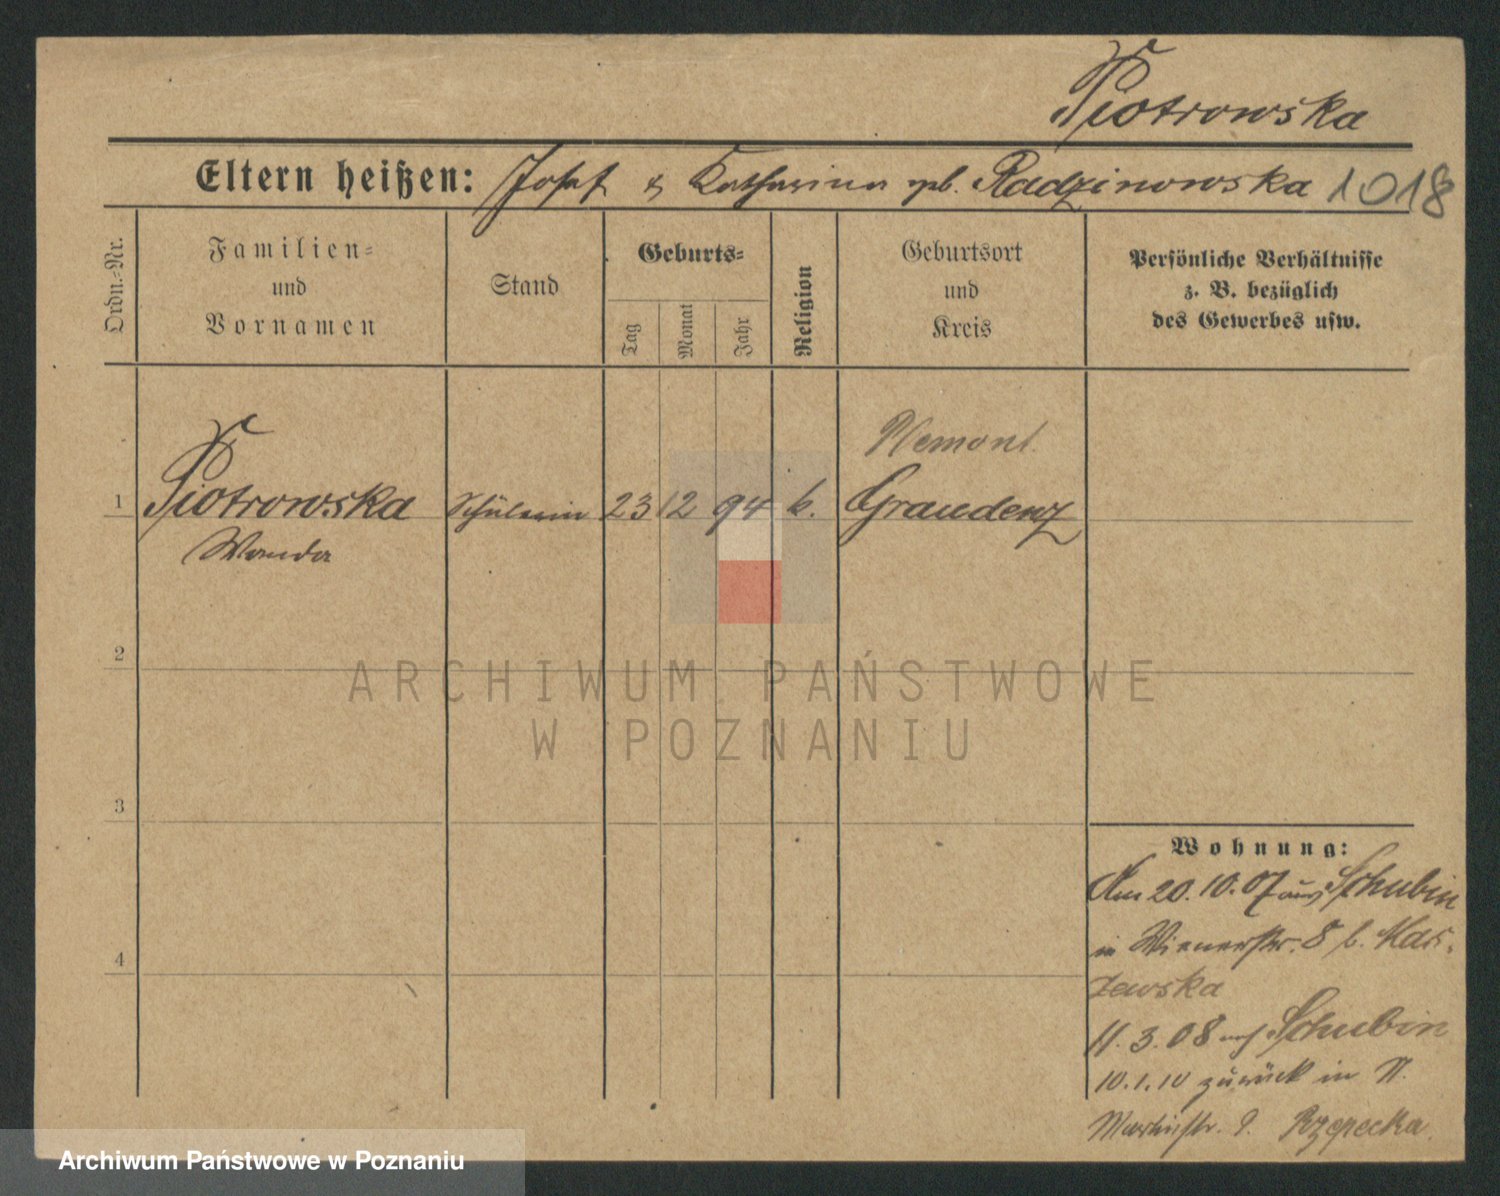 Piotrowska
Eltern heißen: Josef & Katharina geb. Radzinowska 1018
Ordn.-Nr.
Familien-
und
Vornamen
Stand
Geburts-
Tag
Monat
Jahr
Religion
Geburtsort
und
Kreis
Persönliche Verhältnisse
z. B. bezüglich
des Gewerbes usw.
1 Piotrowska Schülerin 23 12 94 k. Graudenz
Wanda
2
3
4
ARCHIWUM PAŃSTWOWE
W POZNANIU
Wohnung:
Am 20.10.07 aus Schubin
in Wienerstr. 8 b.
11.3.08 nach Schubin
10.1.10 zurück in St.
Martinstr. 9. Rzepecka.
Archiwum Państwowe w Poznaniu